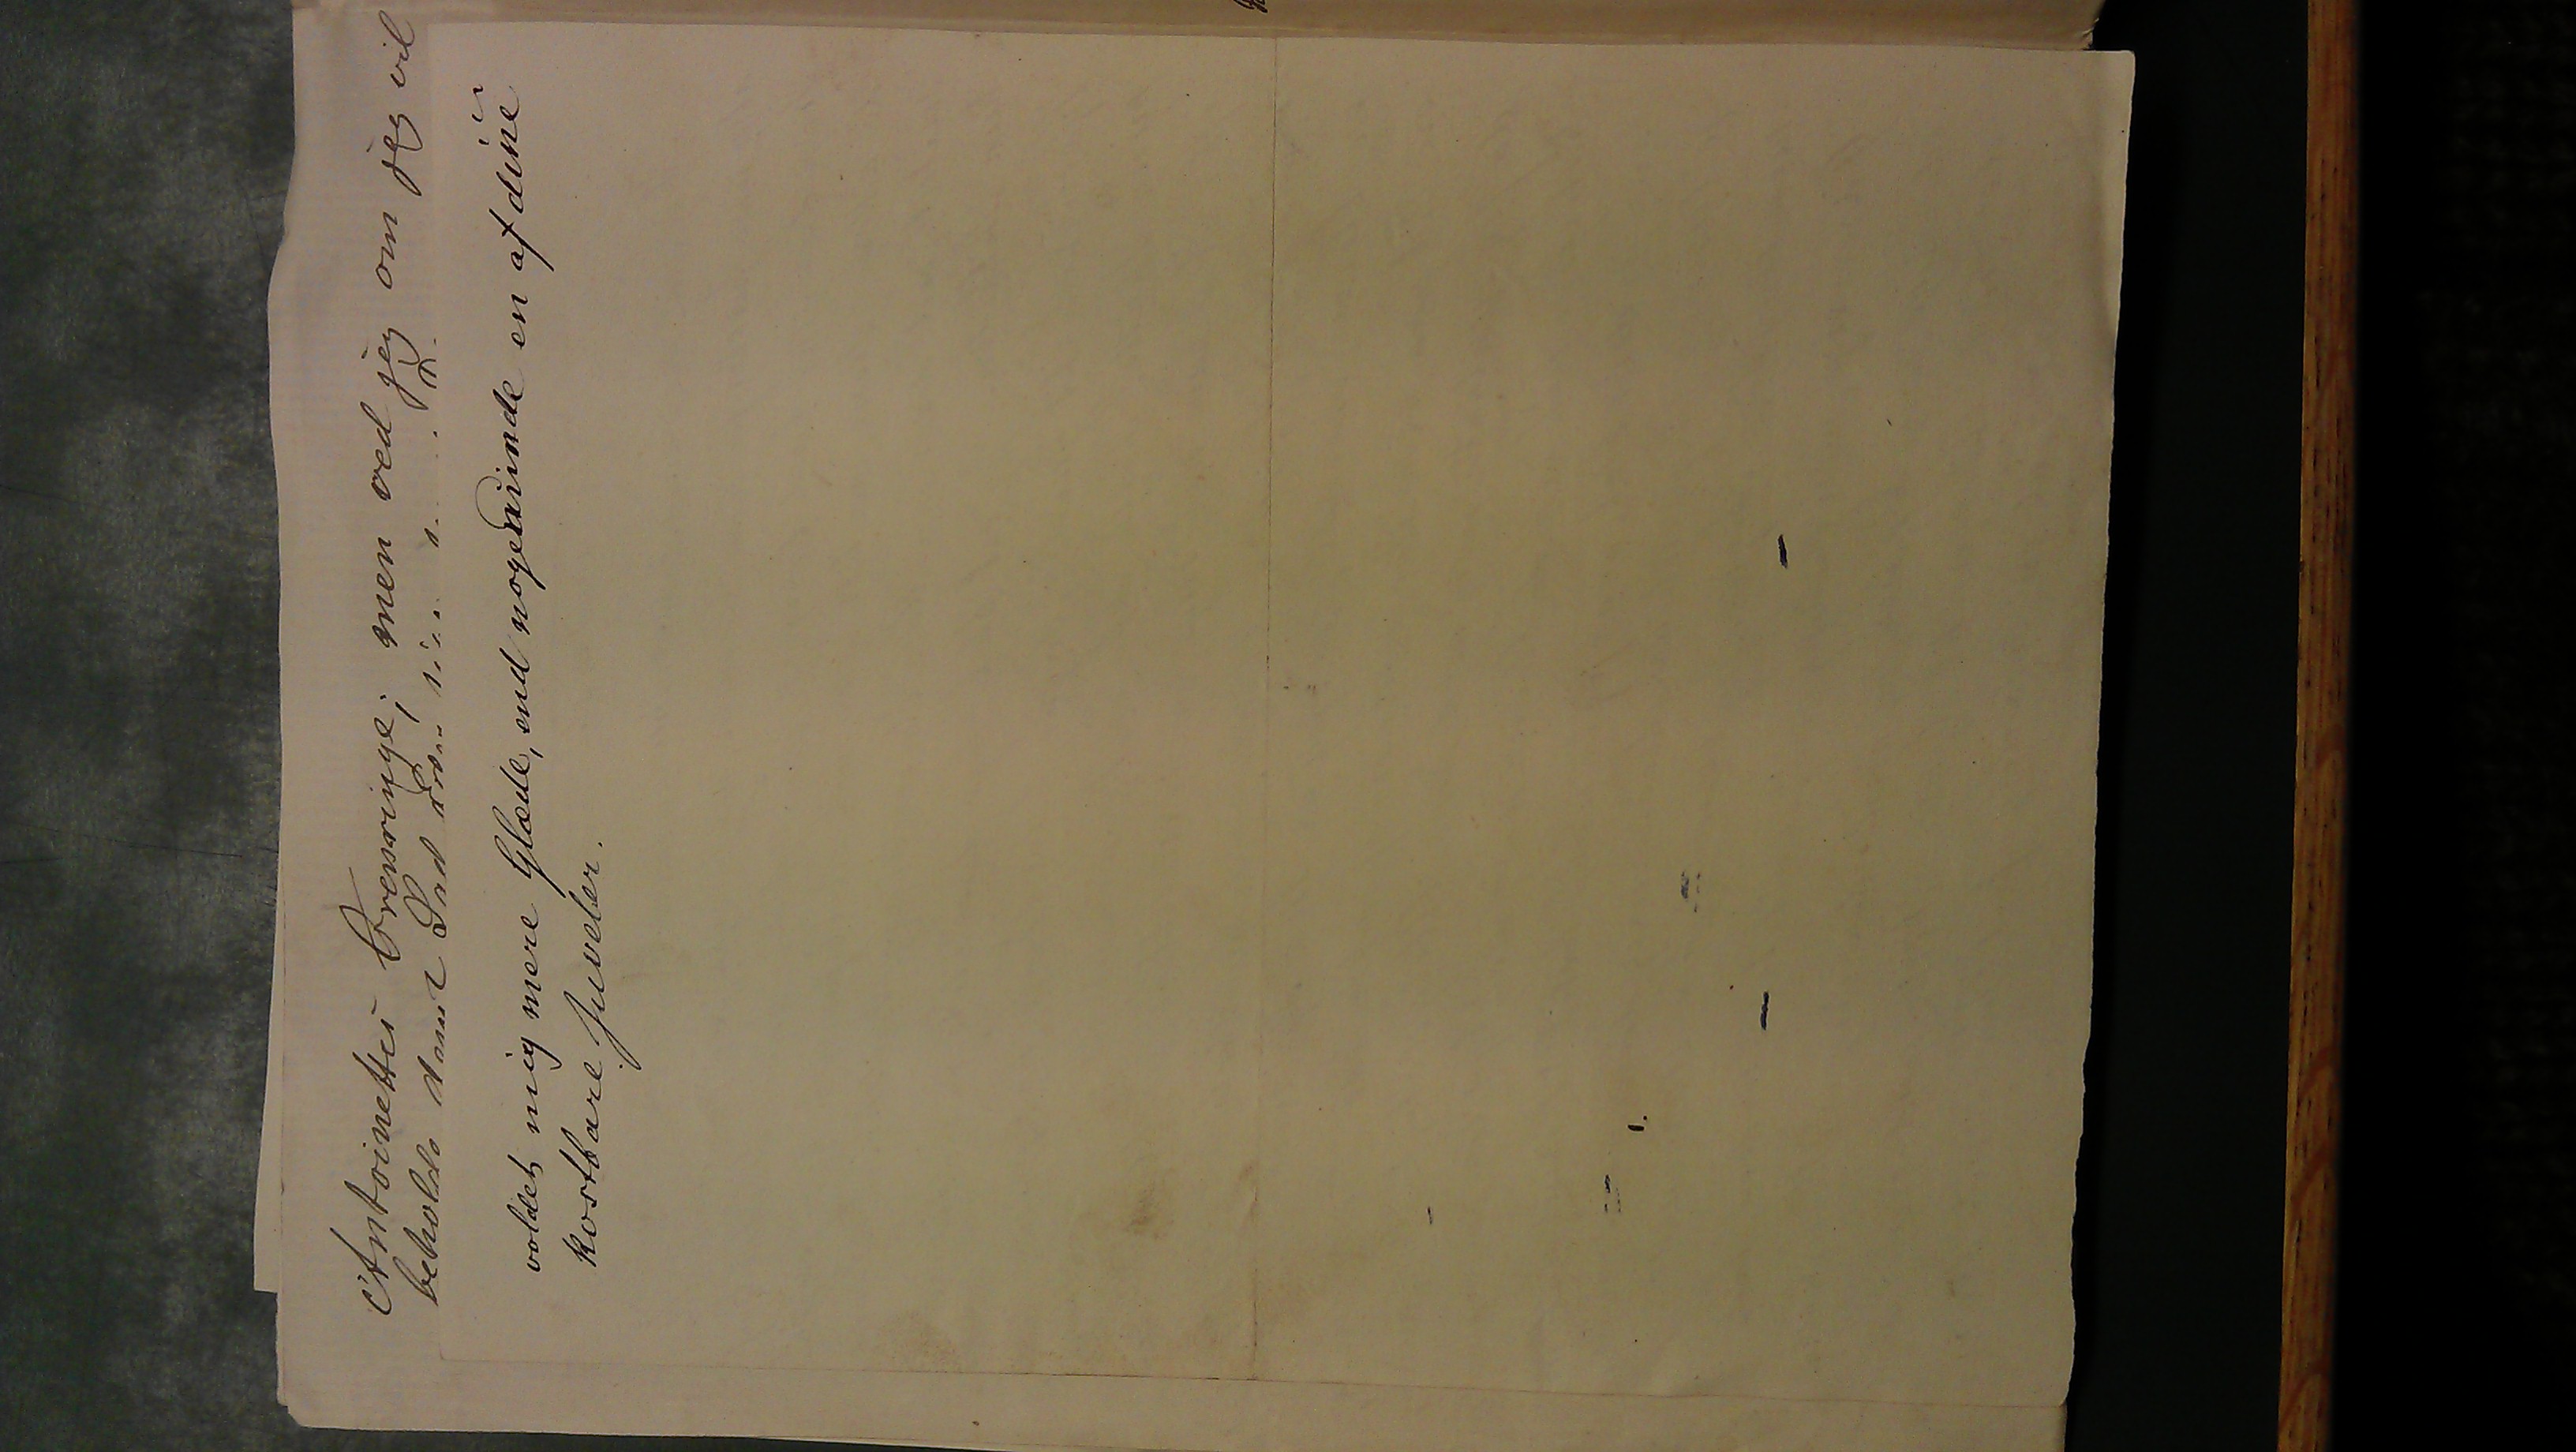 Antoinettes Ørenringe; men ved jeg om jeg vil
beholde dem?
voldet mig mere Glæde, end nogensinde en af dine
kostbare Juveler.